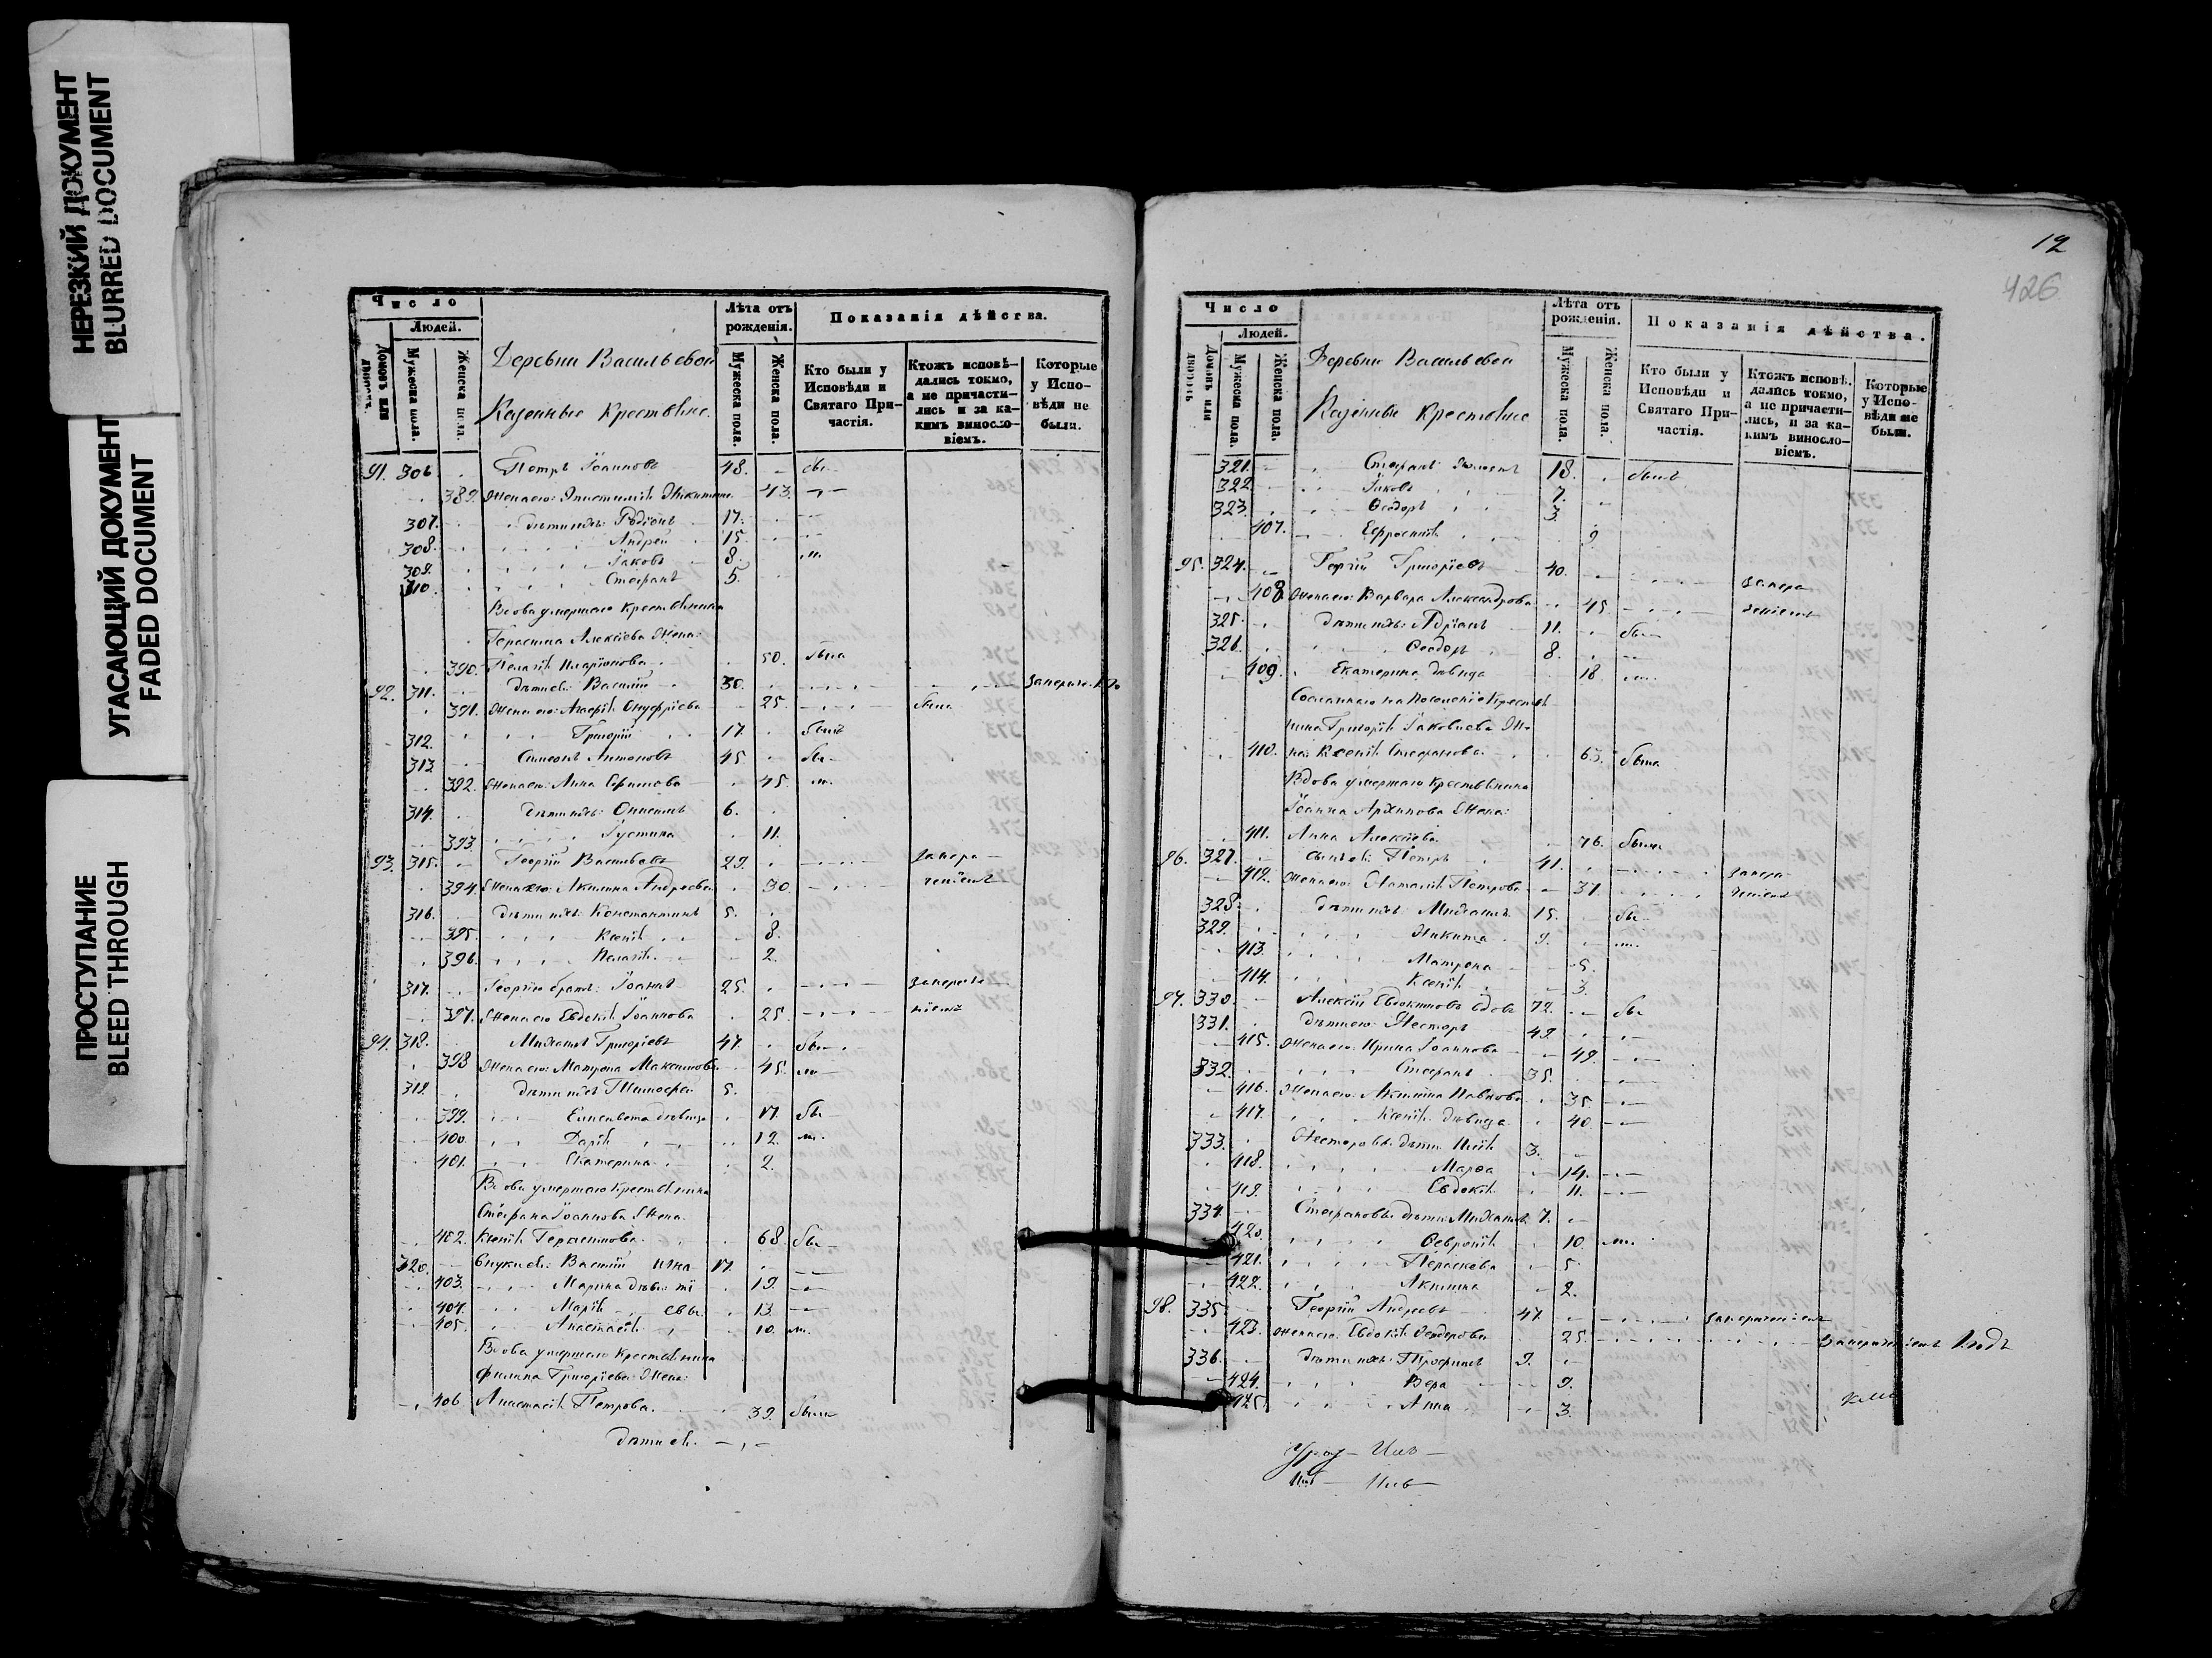 НЕРЕЗКИЙ ДОКУМЕНТ
BLURRED DOCUMENT
УГАСАЮЩИЙ ДОКУМЕНТ
FADED DOCUMENT
ПРОСТУПАНИЕ
BLEED THROUGH
Число
Людей.
Домовъ или дворовъ.
Мужеска пола.
Женска пола.
Деревни Васильевой
Казенные крестьяне.
Лѣта отъ рожденія.
Мужеска пола.
Женска пола.
Показанія дѣйства.
Кто были у Исповѣди и Святаго Причастія.
Ктожъ исповѣдались токмо, а не причастились и за какимъ винословіемъ.
Которые у Исповѣди не были.
91. 306 Петръ Іоанновъ 48. бы
389. Жена его: Епистимія Никитина 43.
307. дѣти ихъ: Родіонъ 17.
308. Андрей 15.
309. Іаковъ 8. м.
310. Стефанъ 5.
Вдова умершаго крестьянина
Герасима Алексіева Жена:
390. Пелагія Иларіонова 50. была
92. 311. дѣти ея: Василій 30.
391. Жена его: Агафія Онуфріева 25.
312. Григорій 17. былъ
313. Симеонъ Антоновъ 45. бы
392. Жена его: Анна Ефимова 45. м.
314. дѣти ихъ: Онисимъ 6.
393. Іустина 11.
93. 315. Георгій Васильевъ 29. запре
394. Жена его: Акилина Андреева 30. щеніемъ
316. дѣти ихъ: Константинъ 5.
395. Ксенія 8.
396. Пелагія 2.
317. Георгію братъ: Іоаннъ 25.
397. Жена его Евдокія Іоаннова 25.
94. 318. Михаилъ Григорьевъ 47. бы
398 Жена его: Матрона Максимова 45. м
319. дѣти ихъ Тимофей 5.
399. Елисавета дѣвица 17. бы
400. Дарія 12. м.
401. Екатерина 2.
Вдова умершаго крестьянина
Стефана Іоаннова Жена
402. Ксенія Герасимова 68. бы
320. Внуки ея: Василій 17.
403. Марина 19.
404. Марія 13.
405. Анастасія 10. м.
Вдова умершаго крестьянина
Филипа Григорьева Жена:
406. Анастасія Петрова. 39. была
дѣти ея.
12
426
Число
Людей.
Домовъ или дворовъ
Мужеска пола.
Женска пола.
Деревни Васильевой
Казенные крестьяне
Лѣта отъ рожденія.
Мужеска пола.
Женска пола.
Показанія дѣйства.
Кто были у Исповѣди и Святаго Причастія.
Ктожъ исповѣдались токмо, а не причастились, и за какимъ винословіемъ.
Которые у Исповѣди не были.
321. Стефанъ 18. былъ
322. Іаковъ 7.
323. Ѳеодоръ 3.
407. Ефросинія 9.
95. 324. Григорьевъ 40.
408 Жена его: Варвара Александрова 45.
325. Дѣти ихъ: Адріанъ 11. бы
326. Ѳеодоръ 8.
409. Екатерина дѣвица 18.
Сосланнаго на поселеніе крестья
нина Григорія Іаковлева Же
410. на: Ксенія Стефанова 63. была
Вдова умершаго крестьянина
Іоанна Архипова Жена:
411. Анна Алексіева 76. была
96. 327. сынъ ея: Петръ 41.
412. Жена его: Наталія Петрова 37.
328. Дѣти ихъ: Михаилъ 15. бы
329. Никита 9. м.
413. Матрона 5.
414. Ксенія 3.
97. 330. Алексій Евдокимовъ вдовъ 72. бы
331. Дѣти его: Несторъ 49.
415. Жена его: Ирина Іоаннова 49.
332. Стефанъ 35.
416. Жена его: Акилина Павлова 35.
417. Ксенія дѣвица 40.
333. Несторовы дѣти: 3.
418. Марѳа 14.
419. Евдокія 11.
334. Стефановы дѣти: Михаилъ 7.
420. Февронія 10. м.
421. Параскева 5
422. Акилина 2.
98. 335. Георгій Андреевъ 47.
423. Жена его: Евдокія 25.
336. Дѣти ихъ: Трофимъ 9.
424. Вера 9.
425. Анна 3.